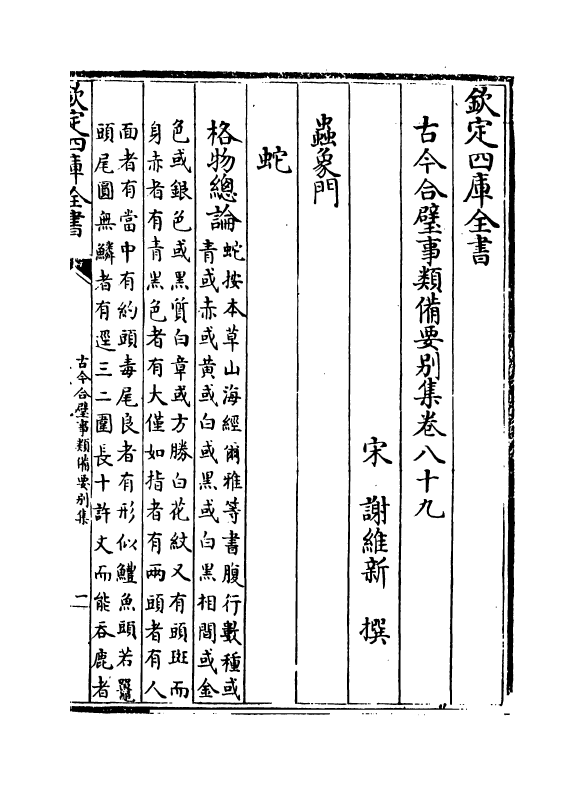 欽定四庫全書
古今合璧事類備要別集卷八十九
宋 謝維新 撰
蟲象門
蛇
格物總論
蛇按本草山海經爾雅等書腹行數種或
青或赤或黃或白或黑或白黑相間或金
色或銀色或黑質白章或方勝白花紋又有頭斑而
身赤者有青黑色者有大僅如指者有兩頭者有人
面者有當中有約頭毒尾良者有形似鱧魚頭若鼍
頭尾圓無鱗者有逕三二圍長十許丈而能吞鹿者
欽定四庫全書
古今合璧事類備要別集